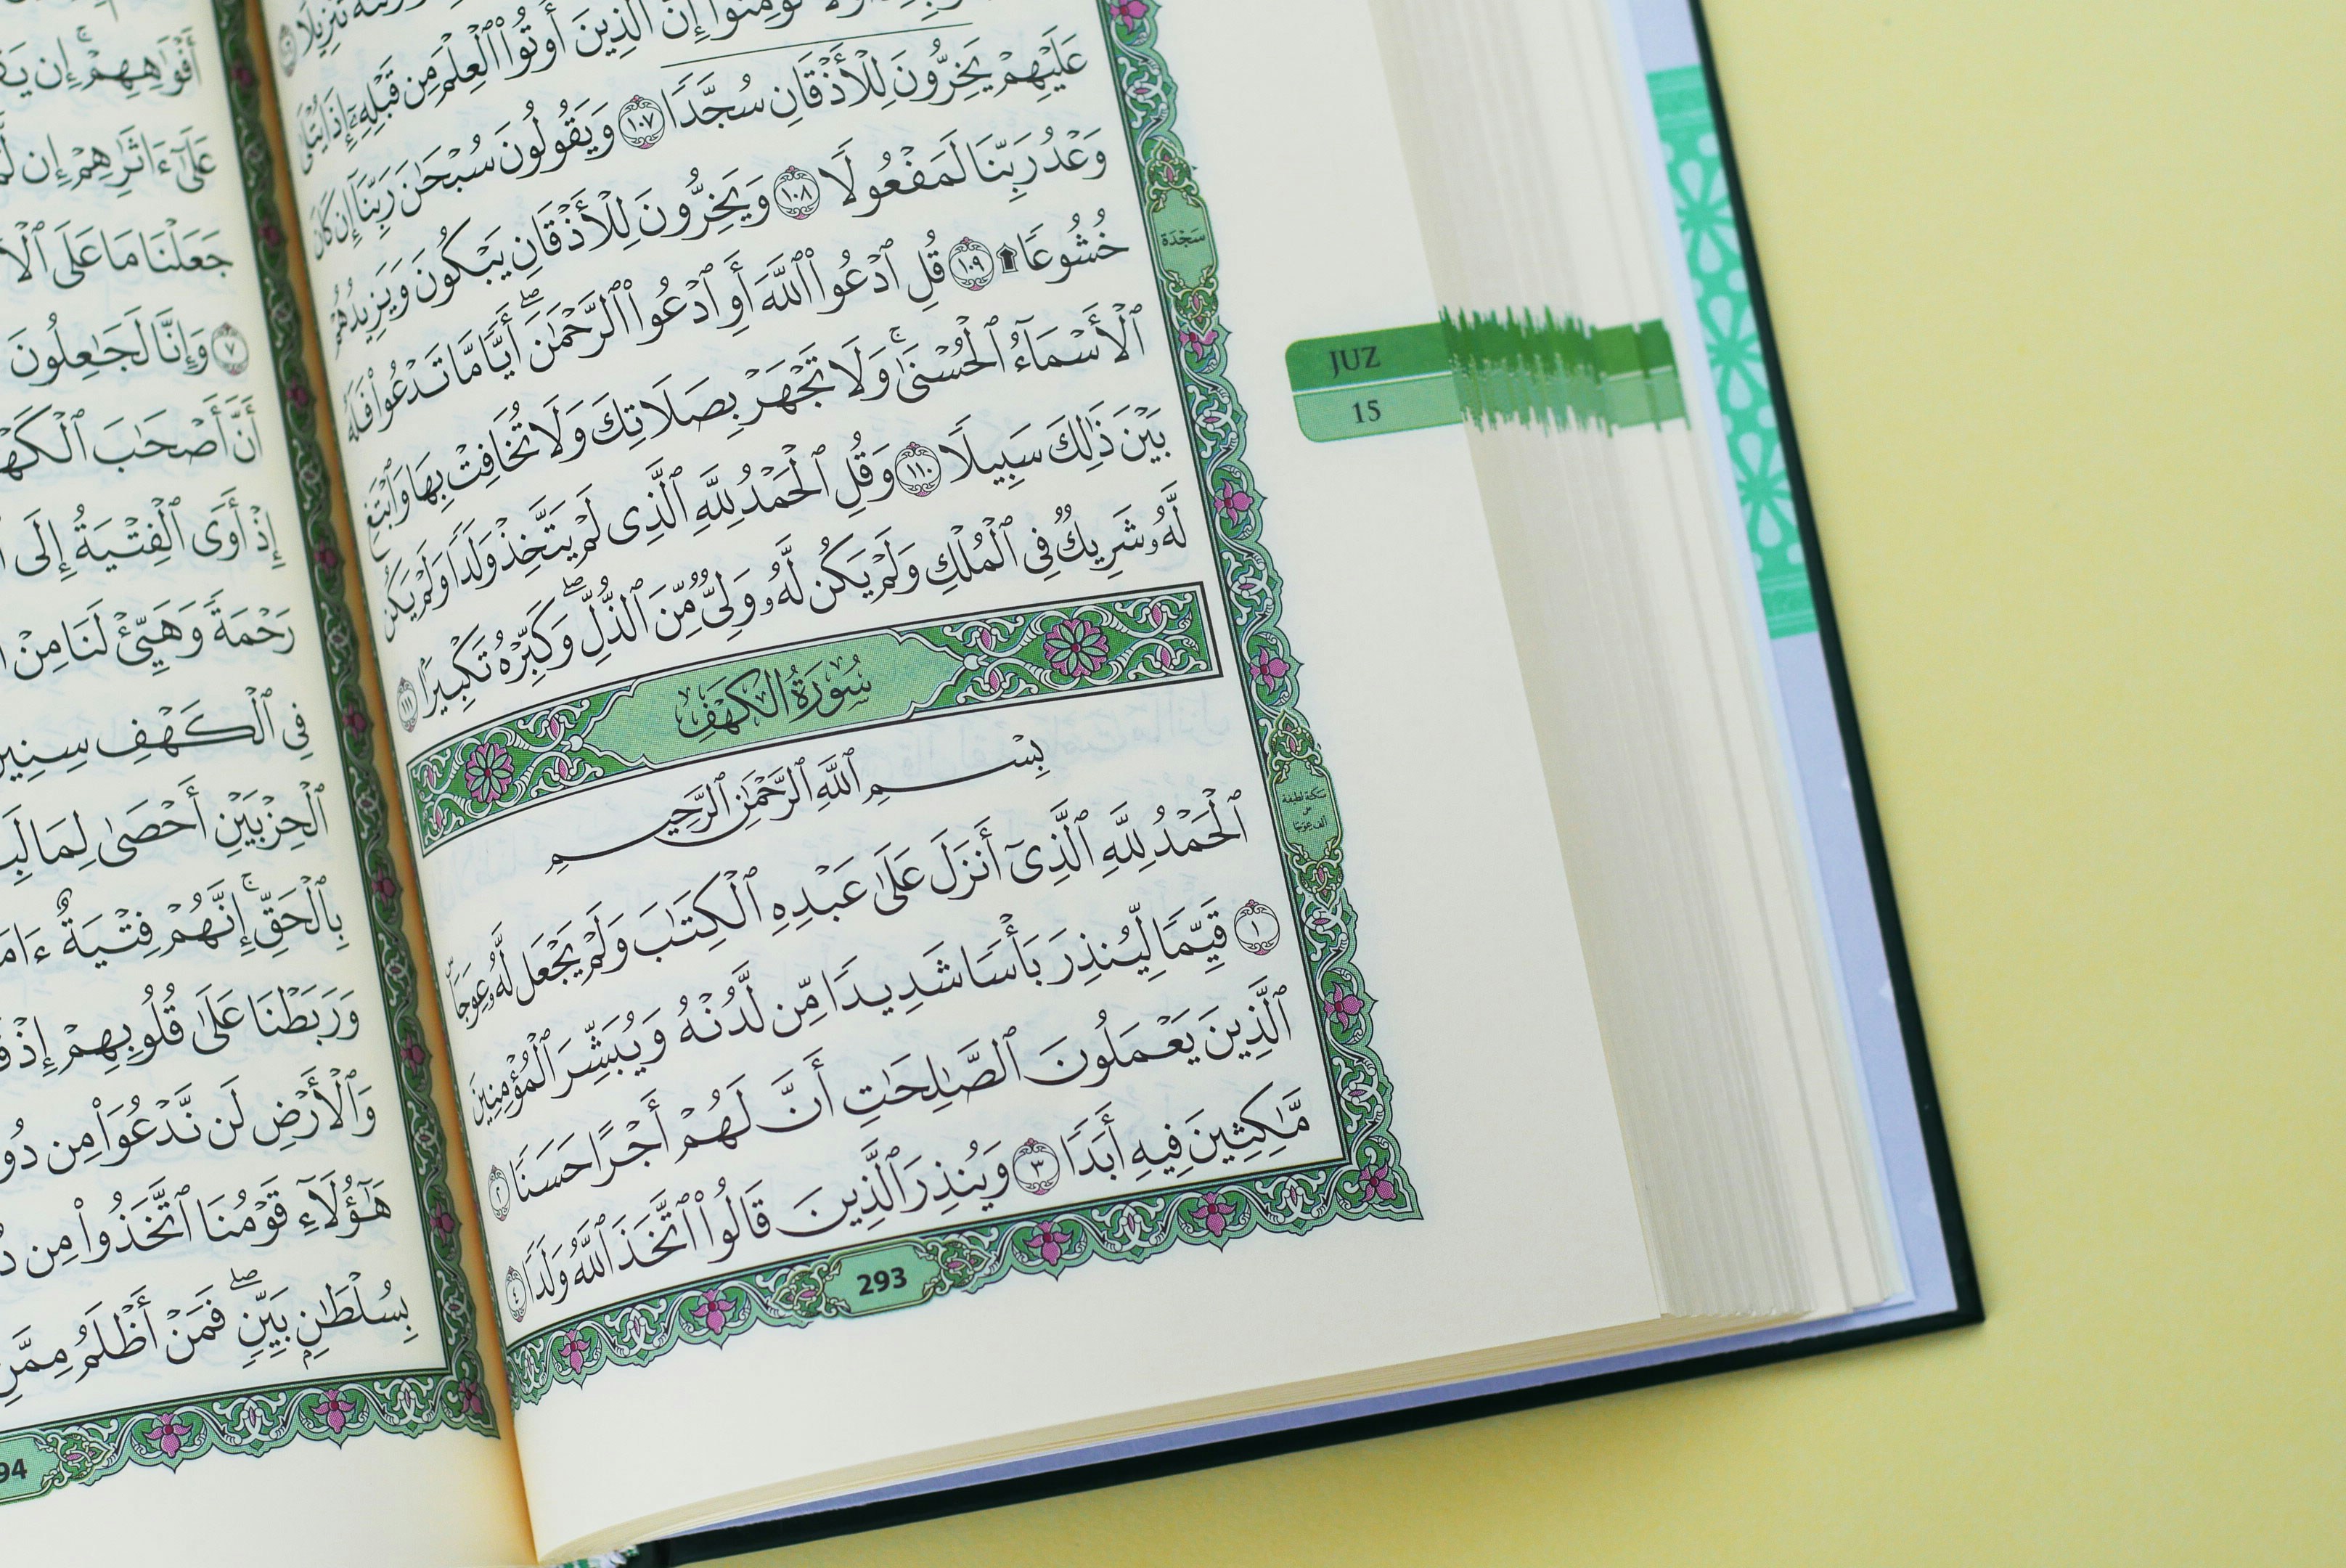 تَنزِيلًا
تُؤْمِنُوٓا۟ إِنَّ ٱلَّذِينَ أُوتُوا۟ ٱلْعِلْمَ مِن قَبْلِهِۦٓ إِذَا يُتْلَىٰ
عَلَيْهِمْ يَخِرُّونَ لِلْأَذْقَانِ سُجَّدًا ١٠٧ وَيَقُولُونَ سُبْحَٰنَ رَبِّنَآ إِن كَانَ
وَعْدُ رَبِّنَا لَمَفْعُولًا ١٠٨ وَيَخِرُّونَ لِلْأَذْقَانِ يَبْكُونَ وَيَزِيدُهُمْ
خُشُوعًا ۩ ١٠٩ قُلِ ٱدْعُوا۟ ٱللَّهَ أَوِ ٱدْعُوا۟ ٱلرَّحْمَٰنَ ۖ أَيًّا مَّا تَدْعُوا۟ فَلَهُ
ٱلْأَسْمَآءُ ٱلْحُسْنَىٰ ۚ وَلَا تَجْهَرْ بِصَلَاتِكَ وَلَا تُخَافِتْ بِهَا وَٱبْتَغِ
بَيْنَ ذَٰلِكَ سَبِيلًا ١١٠ وَقُلِ ٱلْحَمْدُ لِلَّهِ ٱلَّذِى لَمْ يَتَّخِذْ وَلَدًا وَلَمْ يَكُن
لَّهُۥ شَرِيكٌ فِى ٱلْمُلْكِ وَلَمْ يَكُن لَّهُۥ وَلِىٌّ مِّنَ ٱلذُّلِّ ۖ وَكَبِّرْهُ تَكْبِيرًۢا ١١١
سُورَةُ الكَهْفِ
بِسْمِ ٱللَّهِ ٱلرَّحْمَٰنِ ٱلرَّحِيمِ
ٱلْحَمْدُ لِلَّهِ ٱلَّذِىٓ أَنزَلَ عَلَىٰ عَبْدِهِ ٱلْكِتَٰبَ وَلَمْ يَجْعَل لَّهُۥ عِوَجَاۜ
١ قَيِّمًا لِّيُنذِرَ بَأْسًا شَدِيدًا مِّن لَّدُنْهُ وَيُبَشِّرَ ٱلْمُؤْمِنِينَ
ٱلَّذِينَ يَعْمَلُونَ ٱلصَّٰلِحَٰتِ أَنَّ لَهُمْ أَجْرًا حَسَنًا ٢
مَّٰكِثِينَ فِيهِ أَبَدًا ٣ وَيُنذِرَ ٱلَّذِينَ قَالُوا۟ ٱتَّخَذَ ٱللَّهُ وَلَدًا ٤
293
سَجْدَة
سكتة لطيفة
على
ألف عوجا
JUZ
15
أَفْوَٰهِهِمْ ۚ إِن
عَلَىٰٓ ءَاثَٰرِهِمْ إِن
جَعَلْنَا مَا عَلَى
٧ وَإِنَّا لَجَٰعِلُونَ
أَنَّ أَصْحَٰبَ
إِذْ أَوَى ٱلْفِتْيَةُ إِلَى
رَحْمَةً وَهَيِّئْ لَنَا مِنْ
فِى ٱلْكَهْفِ
ٱلْحِزْبَيْنِ أَحْصَىٰ
بِٱلْحَقِّ ۚ إِنَّهُمْ فِتْيَةٌ
وَرَبَطْنَا عَلَىٰ قُلُوبِهِمْ إِذْ
وَٱلْأَرْضِ لَن نَّدْعُوَا۟ مِن
هَٰٓؤُلَآءِ قَوْمُنَا ٱتَّخَذُوا۟ مِن
بِسُلْطَٰنٍۭ بَيِّنٍ ۖ فَمَنْ أَظْلَمُ مِمَّنِ
94